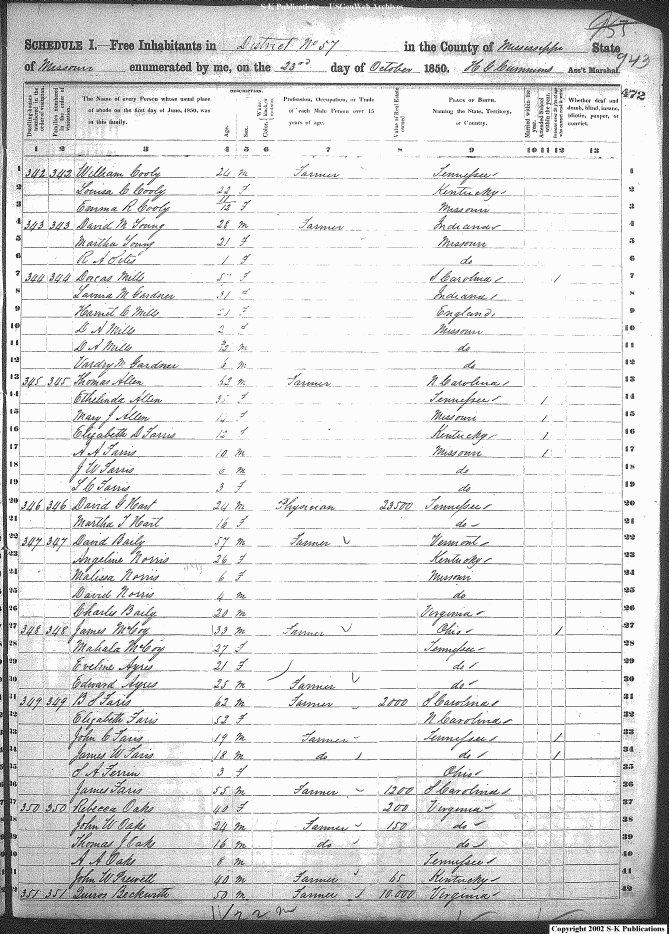 S-K Publications - USGenWeb Archives
955
943
SCHEDULE I.—Free Inhabitants in District No 57 in the County of Mississippi State
of Missouri enumerated by me, on the 23rd day of October 1850. H C Cummins Ass't Marshal.
472
DESCRIPTION.
Dwelling-houses numbered in the order of visitation. Families numbered in the order of visitation. The Name of every Person whose usual place of abode on the first day of June, 1850, was in this family. Age. Sex. Color. Profession, Occupation, or Trade of each Male Person over 15 years of age. Value of Real Estate owned. PLACE OF BIRTH. Naming the State, Territory, or Country. Married within the year. Attended School within the year. Whether deaf and dumb, blind, insane, idiotic, pauper, or convict.
1 2 3 4 5 6 7 8 9 10 11 12 13
1 342 342 William Cooly 24 m Farmer Tennessee 1
2 Louisa C Cooly 22 F Kentucky 2
3 Emma R Cooly 11/12 F Missouri 3
4 343 343 David M Young 28 m Farmer Indiana 4
5 Martha Young 21 F Missouri 5
6 R A 1 F do 6
7 344 344 Dorcas Mills F S Carolina 1 7
8 M Gardner 31 F Indiana 8
9 Harriet C Mills F England 9
10 A Mills 2 F Missouri 10
11 A Mills m do 11
12 Vardry M Gardner m do 12
13 345 345 Thomas Allen m Farmer N Carolina 13
14 Ethelinda Allen 35 F Tennessee 1 14
15 Mary J Allen F Missouri 1 15
16 Elizabeth D Farris 12 F Kentucky 1 16
17 A A Farris 10 m Missouri 1 17
18 J W Farris 6 m do 18
19 S C Farris 3 F do 19
20 346 346 David G Hart 24 m Physician 23500 Tennessee 20
21 Martha T Hart 16 F do 21
22 347 347 David Baily 57 m Farmer Vermont 22
23 Angeline Norris 26 F Kentucky 23
24 Malissa Norris 6 F Missouri 24
25 David Norris 4 m do 25
26 Charles Baily 20 m Virginia 26
27 348 348 James McCoy 33 m Farmer Ohio 1 27
28 Mahala McCoy 27 F Tennessee 28
29 Eveline Ayres 21 F do 29
30 Edward Ayres 25 m Farmer do 30
31 349 349 B S Faris 62 m Farmer 2000 S Carolina 31
32 Elizabeth Faris 52 F N Carolina 32
33 John C Faris 19 m Farmer Tennessee 1 33
34 James W Faris 18 m do do 1 34
35 S A Ferrin 3 F Ohio 35
36 James Faris 55 m Farmer 1200 S Carolina 36
37 350 350 Rebecca Oaks 40 F 200 Virginia 37
38 John W Oaks 24 m Farmer 150 do 38
39 Thomas J Oaks 16 m do do 39
40 A A Oaks 8 m Tennessee 40
41 John W Prewett 40 m Farmer 65 Kentucky 41
42 351 351 Quiros Beckwith 50 m Farmer 10.000 Virginia 42
Copyright 2002 S-K Publications